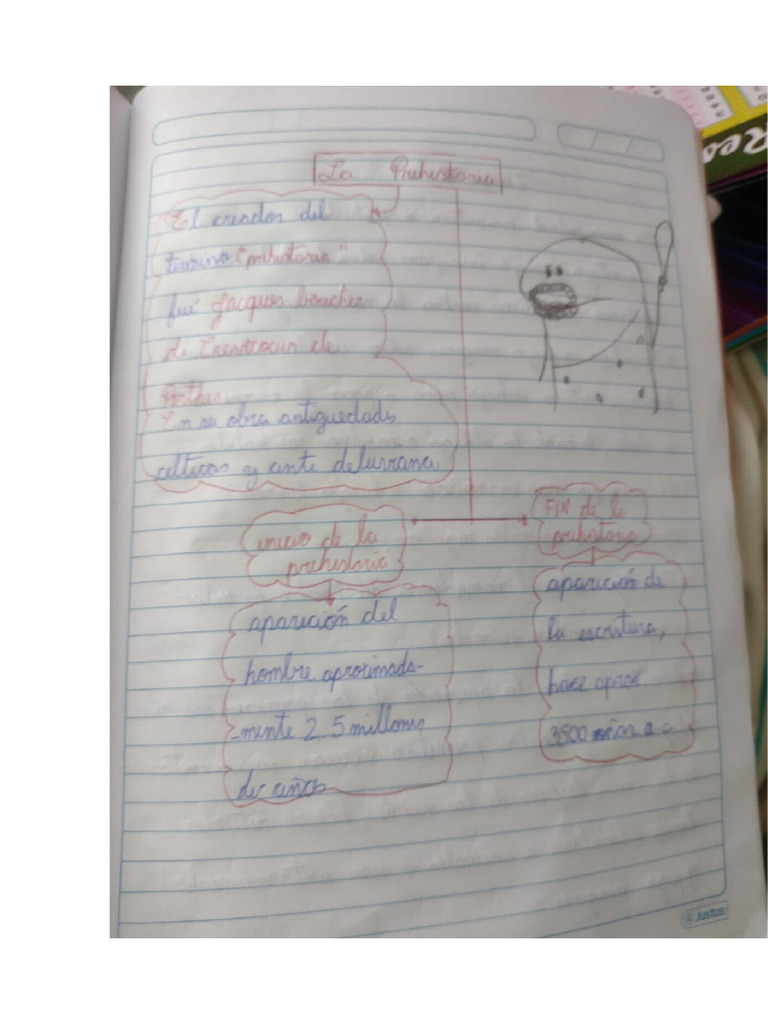 La Prehistoria
El creador del
termino "prehistoria"
fué Jacques boucher
de Crevecoeur de
Perthes
En su obra antiguedades
celticas y ante
inicio de la
prehistoria
aparición del
hombre aproximada-
-mente 2.5 millones
de años
FIN de la
prehistoria
aparición de
la escritura,
hace aprox
3500 años a c
Justus